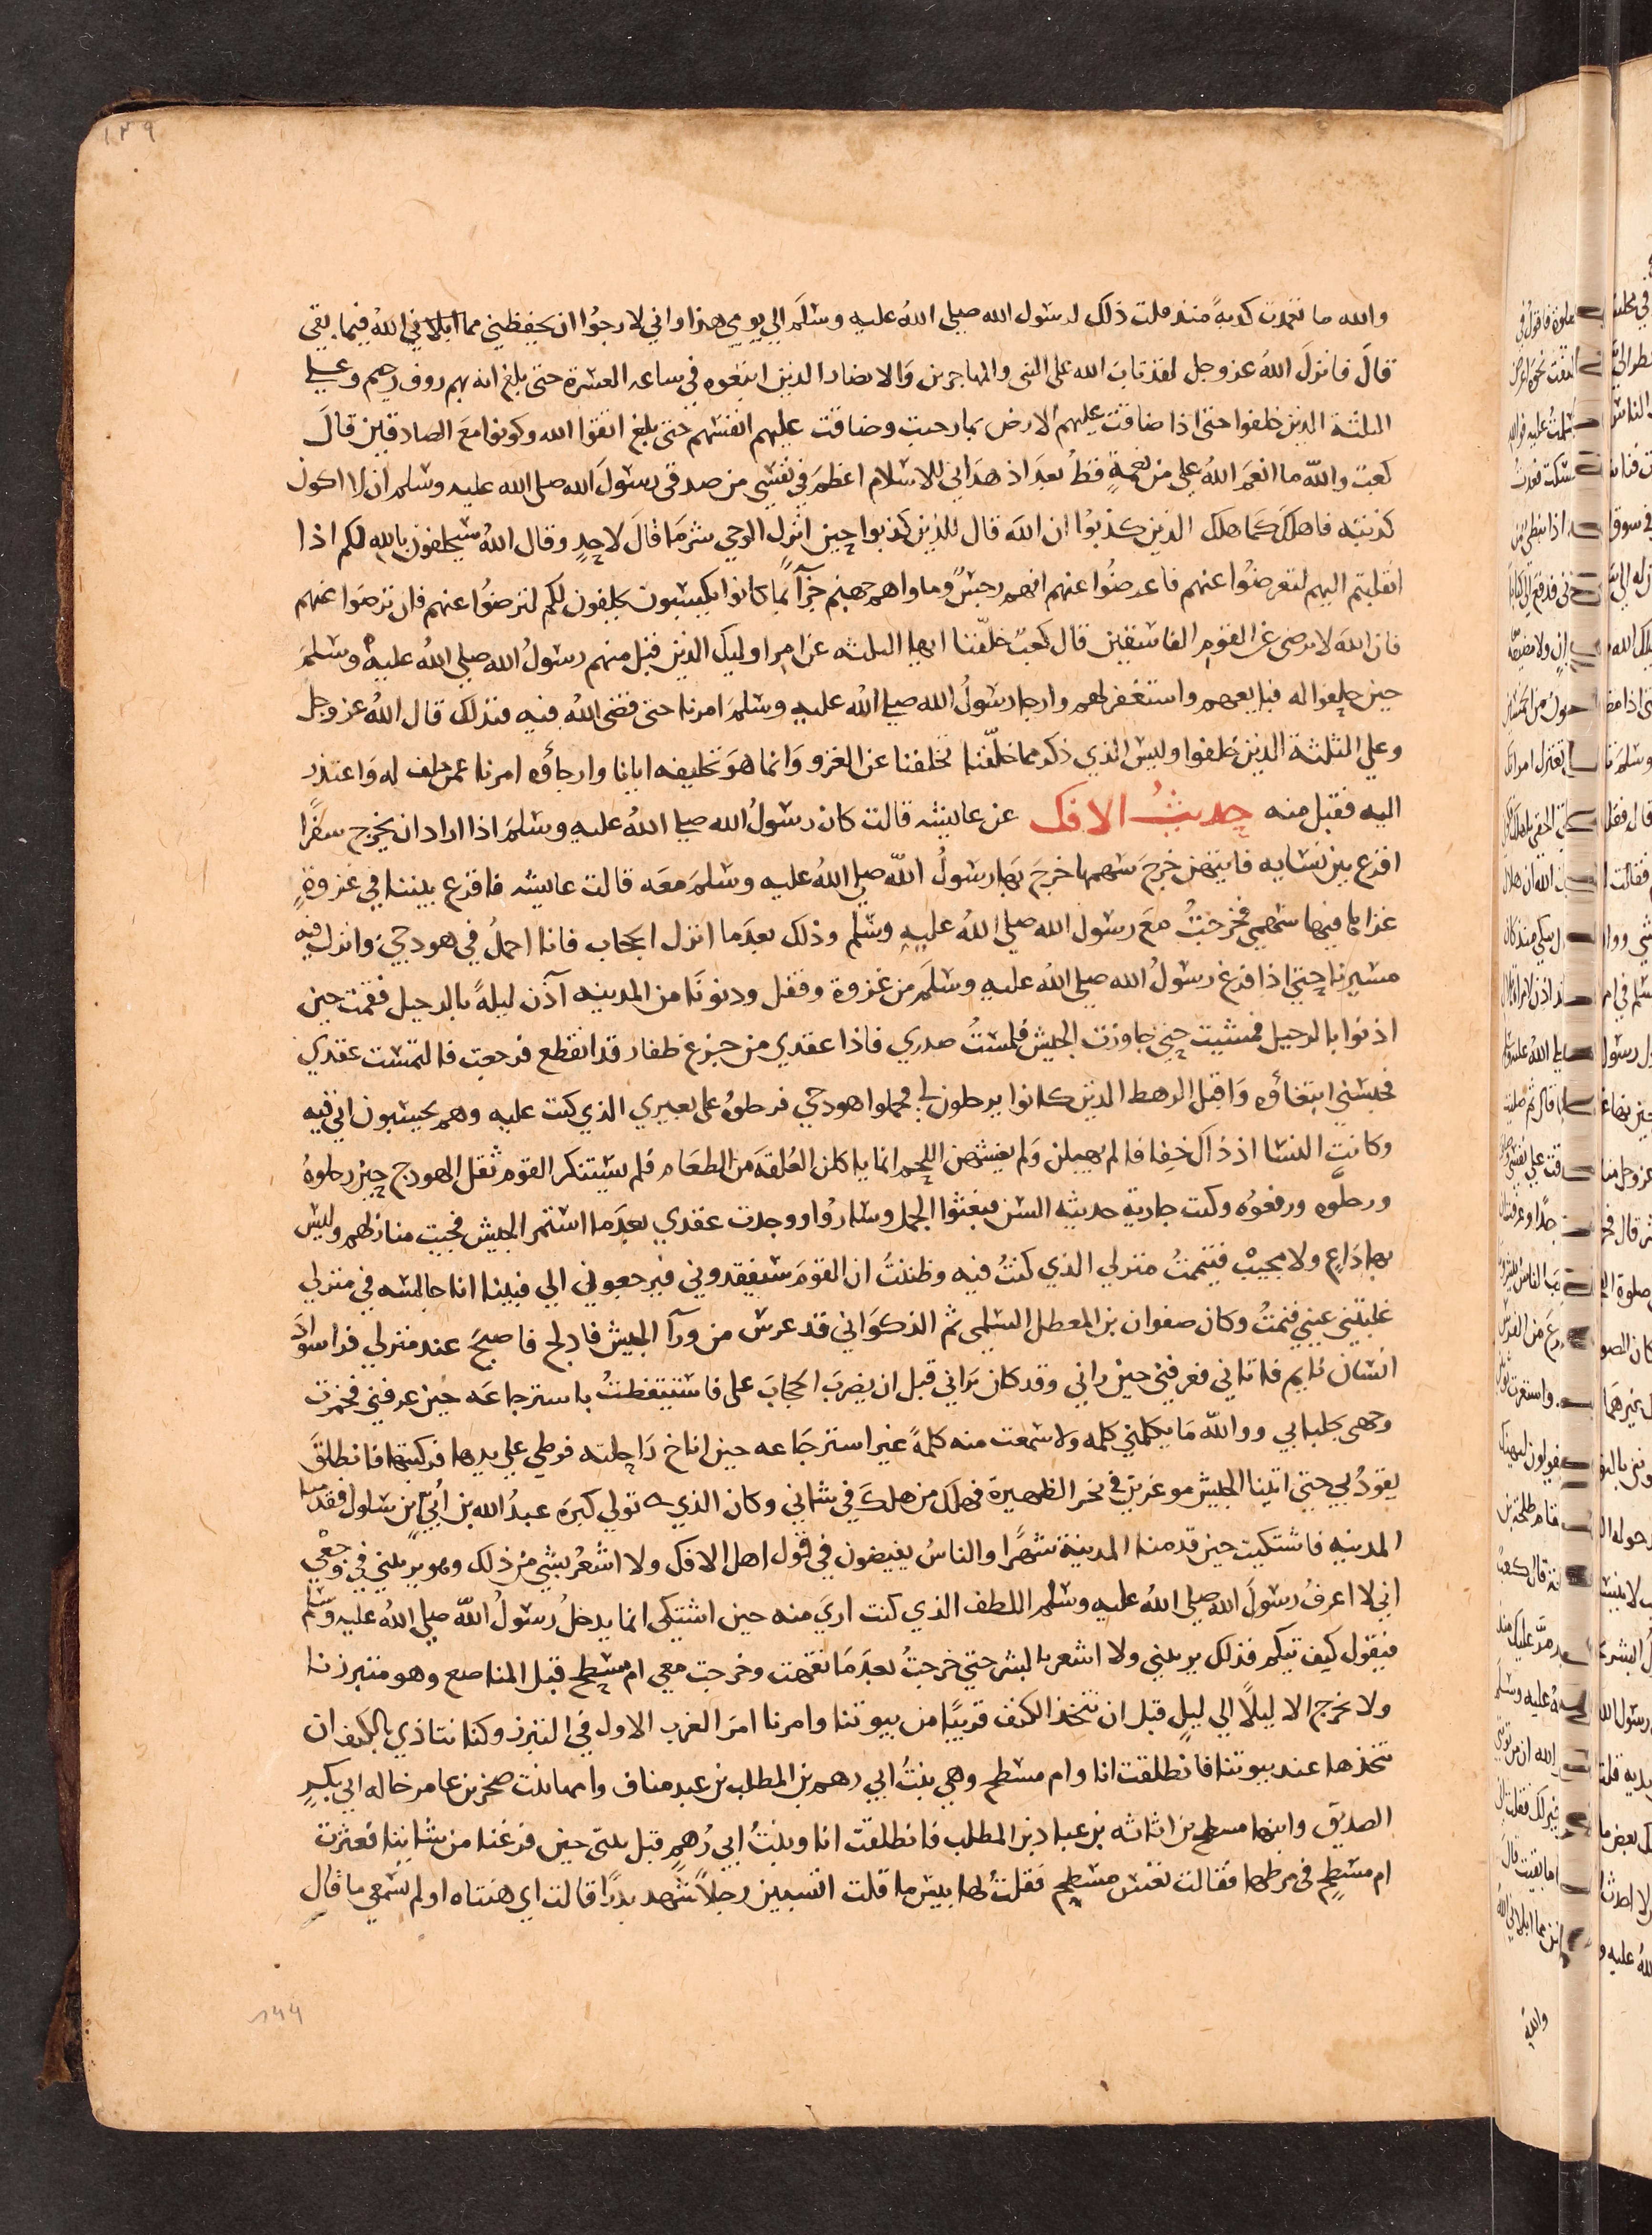 ١٣٩
والله ما تعمدت كذبة منذ قلت ذلك لرسول الله صلي الله عليه وسلم الي يومي هذا واني لارجوا ان يحفظني مما ابلاني الله فيما بقي
قال فانزل الله عز وجل لقد تاب الله على النبي والمهاجرين والانصار الذين اتبعوه في ساعه العسرة حتى بلغ انه بهم روف رحيم وعلي
الثلثة الذين خلفوا حتى اذا ضاقت عليهم الارض بما رحبت وضاقت عليهم انفسهم حتى بلغ اتقوا الله وكونوا مع الصادقين قال
كعب والله ما انعم الله علي من نعمة قط بعد اذ هداني للاسلام اعظم في نفسي من صدقي رسول الله صلى الله عليه وسلم ان لا اكون
كذبته فاهلك كما هلك الذين كذبوا ان الله قال للذين كذبوا حين انزل الوحي شر ما قال لاحد وقال الله سيحلفون بالله لكم اذا
انقلبتم اليهم لتعرضوا عنهم فاعرضوا عنهم انهم رجس وماواهم جهنم جزآ بما كانوا يكسبون يحلفون لكم لترضوا عنهم فان ترضوا عنهم
فان الله لا يرضى عن القوم الفاسقين قال كعب خلفنا ايها الثلثه عن امر اوليك الذين قبل منهم رسول الله صلي الله عليه وسلم
حين حلفوا له فبايعهم واستغفر لهم وارجا رسول الله صلي الله عليه وسلم امرنا حتى قضى الله فيه فبذلك قال الله عز وجل
وعلي الثلثة الذين خلفوا وليس الذي ذكر مما خلفنا تخلفنا عن الغزو وانما هو تخليفه ايانا وارجأوه امرنا عمن حلف له واعتذر
اليه فقبل منه حديث الافك عن عايشه قالت كان رسول الله صلي الله عليه وسلم اذا اراد ان يخرج سفرا
اقرع بين نسايه فايتهن خرج سهمها خرج بها رسول الله صلي الله عليه وسلم معه قالت عايشه فاقرع بيننا في غزوة
غزاها فيها سهمي فخرجت مع رسول الله صلي الله عليه وسلم وذلك بعدما انزل الحجاب فانا احمل في هودجي وانزل فيه
مسيرنا حتي اذا فرغ رسول الله صلي الله عليه وسلم من غزوة وقفل ودنونا من المدينه آذن ليلة بالرحيل فقمت حين
اذنوا بالرحيل فمشيت حتي جاوزت الجيش فلمست صدري فاذا عقدي من جزع ظفار قد انقطع فرجعت فالتمست عقدي
فحبسني ابتغاؤه واقبل الرهط الذين كانوا يرحلون لي فحملوا هودجي فرحلوه على بعيري الذي كنت عليه وهم يحسبون اني فيه
وكانت النسا اذ ذاك خفافا لم يهبلن ولم يغشهن اللحم انما ياكلن العلقة من الطعام فلم يستنكر القوم ثقل الهودج حين رحلوه
ورحلوه ورفعوه وكنت جارية حديثه السن فبعثوا الجمل وساروا ووجدت عقدي بعدما استمر الجيش فجيت منازلهم وليس
بها داع ولا مجيب فتيممت منزلي الذي كنت فيه وظننت ان القوم سيفقدوني فيرجعوني الي فبينا انا جالسه في منزلي
غلبتني عيني فنمت وكان صفوان بن المعطل السلمي ثم الذكواني قد عرس من ورآ الجيش فادلج فاصبح عند منزلي فراسواد
انسان نايم فاتاني فعرفني حين راني وقد كان يراني قبل ان يضرب الحجاب على فاستيقظت باسترجاعه حين عرفني فخمرت
وجهي بجلبابي ووالله ما يكلمني كلمه ولا سمعت منه كلمة غير استرجاعه حين اناخ راحلته فوطي علي يدها فركبتها فانطلق
يقود بي حتى اتينا الجيش موغرين في نحر الظهيرة فهلك من هلك في شاني وكان الذي تولي كبره عبد الله بن أبي بن سلول فقدمنا
المدينه فاشتكيت حين قدمنا المدينة شهرا والناس يفيضون في قول اهل الافك ولا اشعر بشي من ذلك وهو يريبني في وجعي
اني لا اعرف رسول الله صلي الله عليه وسلم اللطف الذي كنت اري منه حين اشتكى انما يدخل رسول الله صلي الله عليه وسلم
فيقول كيف تيكم فذلك يريبني ولا اشعر بالشر حتي خرجت بعد ما نقهت وخرجت معي ام مسطح قبل المناصع وهو متبرزنا
ولا نخرج الا ليلا الي ليل قبل ان نتخذ الكنف قريبا من بيوتنا وامرنا امر العرب الاول في التبرز وكنا نتاذي بالكنف ان
نتخذها عند بيوتنا فانطلقت انا وام مسطح وهي بنت ابي رهم بن المطلب بن عبد مناف وامها بنت صخر بن عامر خاله ابي بكر
الصديق وابنها مسطح بن اثاثه بن عباد بن المطلب فانطلقت انا وبنت ابي رهم قبل بيتي حين فرغنا من شاننا فعثرت
ام مسطح في مرطها فقالت تعس مسطح فقلت لها بيس ما قلت اتسبين رجلا شهد بدرا قالت اي هنتاه اولم تسمعي ما قال
١٤٤
والله